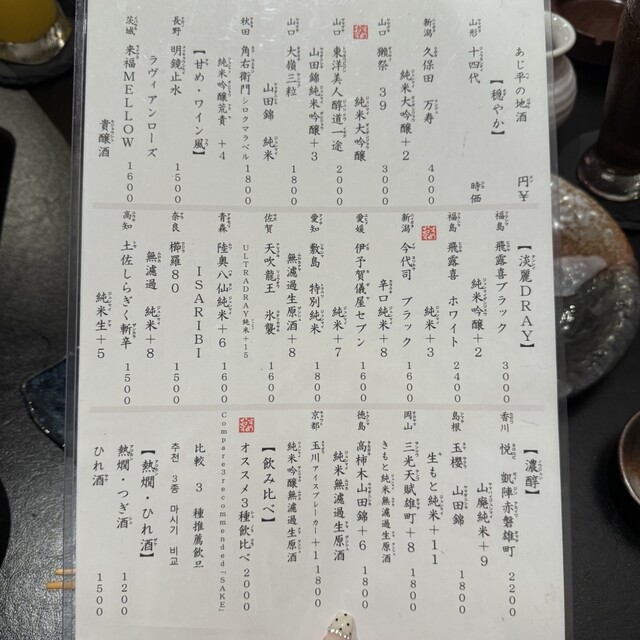 あじ平の地酒 円¥
【穏やか】
山形 十四代 時価
新潟 久保田 万寿
純米大吟醸+2 4000
山口 獺祭 39
純米大吟醸 3000
山口 東洋美人醇道一途
山田錦純米吟醸+3 2000
山口 大嶺三粒
山田錦 純米 1800
秋田 角右衛門シロクマラベル
純米吟醸荒責 +4 1800
【甘め・ワイン風】
長野 明鏡止水
ラヴィアンローズ 1500
茨城 来福MELLOW
貴醸酒 1600
【淡麗DRAY】
福島 飛露喜ブラック
純米吟醸+2 3000
福島 飛露喜 ホワイト
純米+3 2400
新潟 今代司 ブラック
辛口純米+8 1600
愛媛 伊予賀儀屋セブン
純米+7 1600
愛知 敷島 特別純米
無濾過生原酒+8 1800
佐賀 天吹龍王 氷襲
ULTRADRAY純米+15 1600
青森 陸奥八仙純米+6
ISARIBI 1600
奈良 櫛羅80
無濾過 純米+8 1500
高知 土佐しらぎく斬辛
純米生+5 1500
【濃醇】
香川 悦 凱陣赤磐雄町
山廃純米+9 2200
島根 玉櫻 山田錦
生もと純米+11 1800
岡山 三光天賦雄町+8
きもと純米無濾過生原酒 1800
徳島 高柿木山田錦+6
純米無濾過生原酒 1800
京都 玉川アイスブレーカー+1
純米吟醸無濾過生原酒 1800
【飲み比べ】
オススメ3種飲比べ 2000
Compare3recommended「SAKE」
比較 3 種推薦飲品
추천 3종 마시기 비교
【熱燗・ひれ酒】
熱燗・つぎ酒 1200
ひれ酒 1500